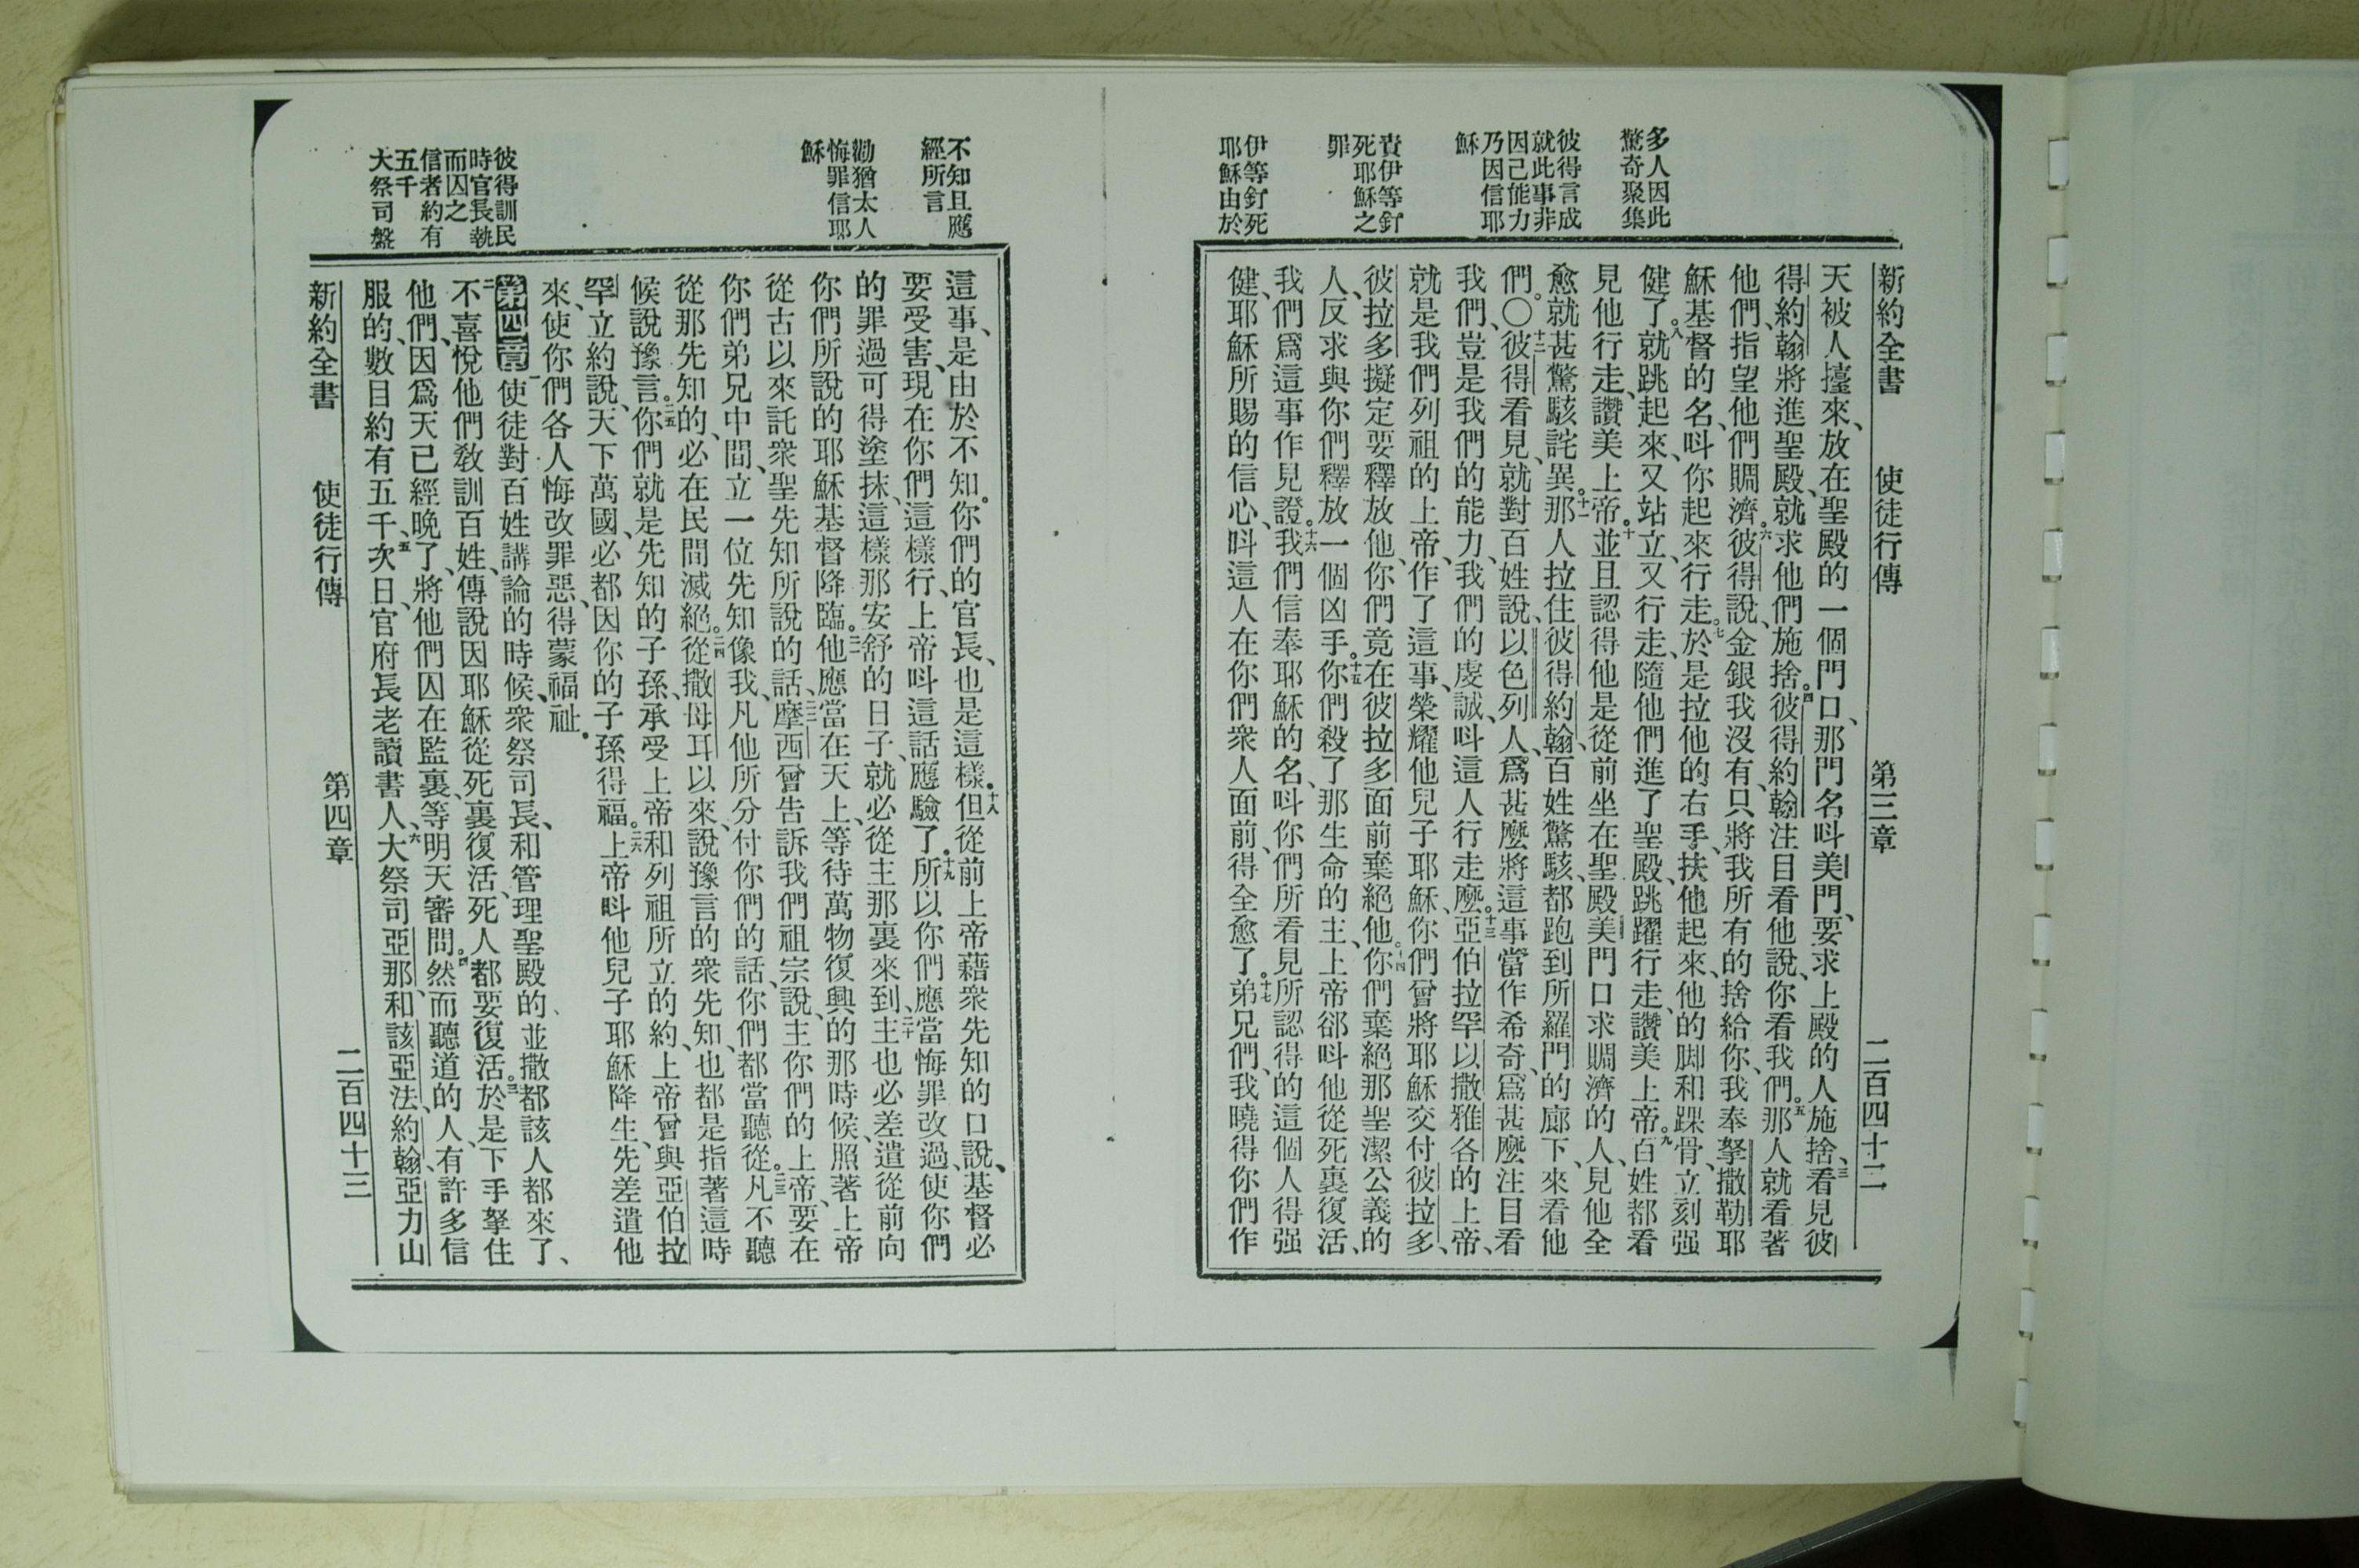 多人因此
驚奇聚集
彼得言成
就此事非
因己能力
乃因信耶
穌
責伊等釘
死耶穌之
罪
伊等釘死
耶穌由於
新約全書 使徒行傳 第三章 二百四十二
天被人擡來、放在聖殿的一個門口、那門名呌美門、要求上殿的人施捨、三看見彼
得約翰將進聖殿、就求他們施捨。四彼得約翰注目看他說、你看我們。五那人就看著
他們、指望他們賙濟。六彼得說、金銀我沒有、只將我所有的捨給你、我奉拏撒勒耶
穌基督的名、呌你起來行走。七於是拉他的右手、扶他起來、他的脚和踝骨、立刻强
健了。八就跳起來、又站立、又行走、隨他們進了聖殿、跳躍行走、讚美上帝。九百姓都看
見他行走、讚美上帝。十並且認得他是從前坐在聖殿美門口求賙濟的人、見他全
愈就甚驚駭詫異。十一那人拉住彼得約翰、百姓驚駭、都跑到所羅門的廊下、來看他
們。〇十二彼得看見、就對百姓說、以色列人、爲甚麼將這事當作希奇、爲甚麼注目看
我們、豈是我們的能力、我們的虔誠、呌這人行走麼。十三亞伯拉罕以撒雅各的上帝、
就是我們列祖的上帝、作了這事、榮耀他兒子耶穌、你們曾將耶穌交付彼拉多、
彼拉多擬定要釋放他、你們竟在彼拉多面前棄絕他。十四你們棄絕那聖潔公義的
人、反求與你們釋放一個凶手。十五你們殺了那生命的主、上帝郤呌他從死裏復活、
我們爲這事作見證。十六我們信奉耶穌的名、呌你們所看見所認得的這個人得强
健、耶穌所賜的信心、呌這人在你們衆人面前、得全愈了。十七弟兄們、我曉得你們作
不知且應
經所言
勸猶太人
悔罪信耶
穌
彼得訓民
時官長執
而囚之
信者約有
五千
大祭司盤
這事、是由於不知。你們的官長、也是這樣。十八但從前上帝藉衆先知的口說、基督必
要受害、現在你們這樣行、上帝呌這話應驗了。十九所以你們應當悔罪改過、使你們
的罪過可得塗抹、這樣那安舒的日子、就必從主那裏來到、二十主也必差遣從前向
你們所說的耶穌基督降臨。二一他應當在天上、等待萬物復興的那時候、照著上帝
從古以來託衆聖先知所說的話、二二摩西曾告訴我們祖宗說、主你們的上帝、要在
你們弟兄中間、立一位先知像我、凡他所分付你們的話、你們都當聽從。二三凡不聽
從那先知的、必在民間滅絕。二四從撒母耳以來、說豫言的衆先知、也都是指著這時
候說豫言。二五你們就是先知的子孫、承受上帝和列祖所立的約、上帝曾與亞伯拉
罕立約說、天下萬國、必都因你的子孫得福。二六上帝呌他兒子耶穌降生、先差遣他
來、使你們各人悔改罪惡、得蒙福祉。
第四章 一使徒對百姓講論的時候、衆祭司長、和管理聖殿的、並撒都該人都來了、
二不喜悅他們敎訓百姓、傳說因耶穌從死裏復活、死人都要復活。三於是下手拏住
他們、因爲天已經晚了、將他們囚在監裏、等明天審問。四然而聽道的人、有許多信
服的、數目約有五千、五次日、官府長老讀書人、六大祭司亞那、和該亞法、約翰、亞力山
新約全書 使徒行傳 第四章 二百四十三